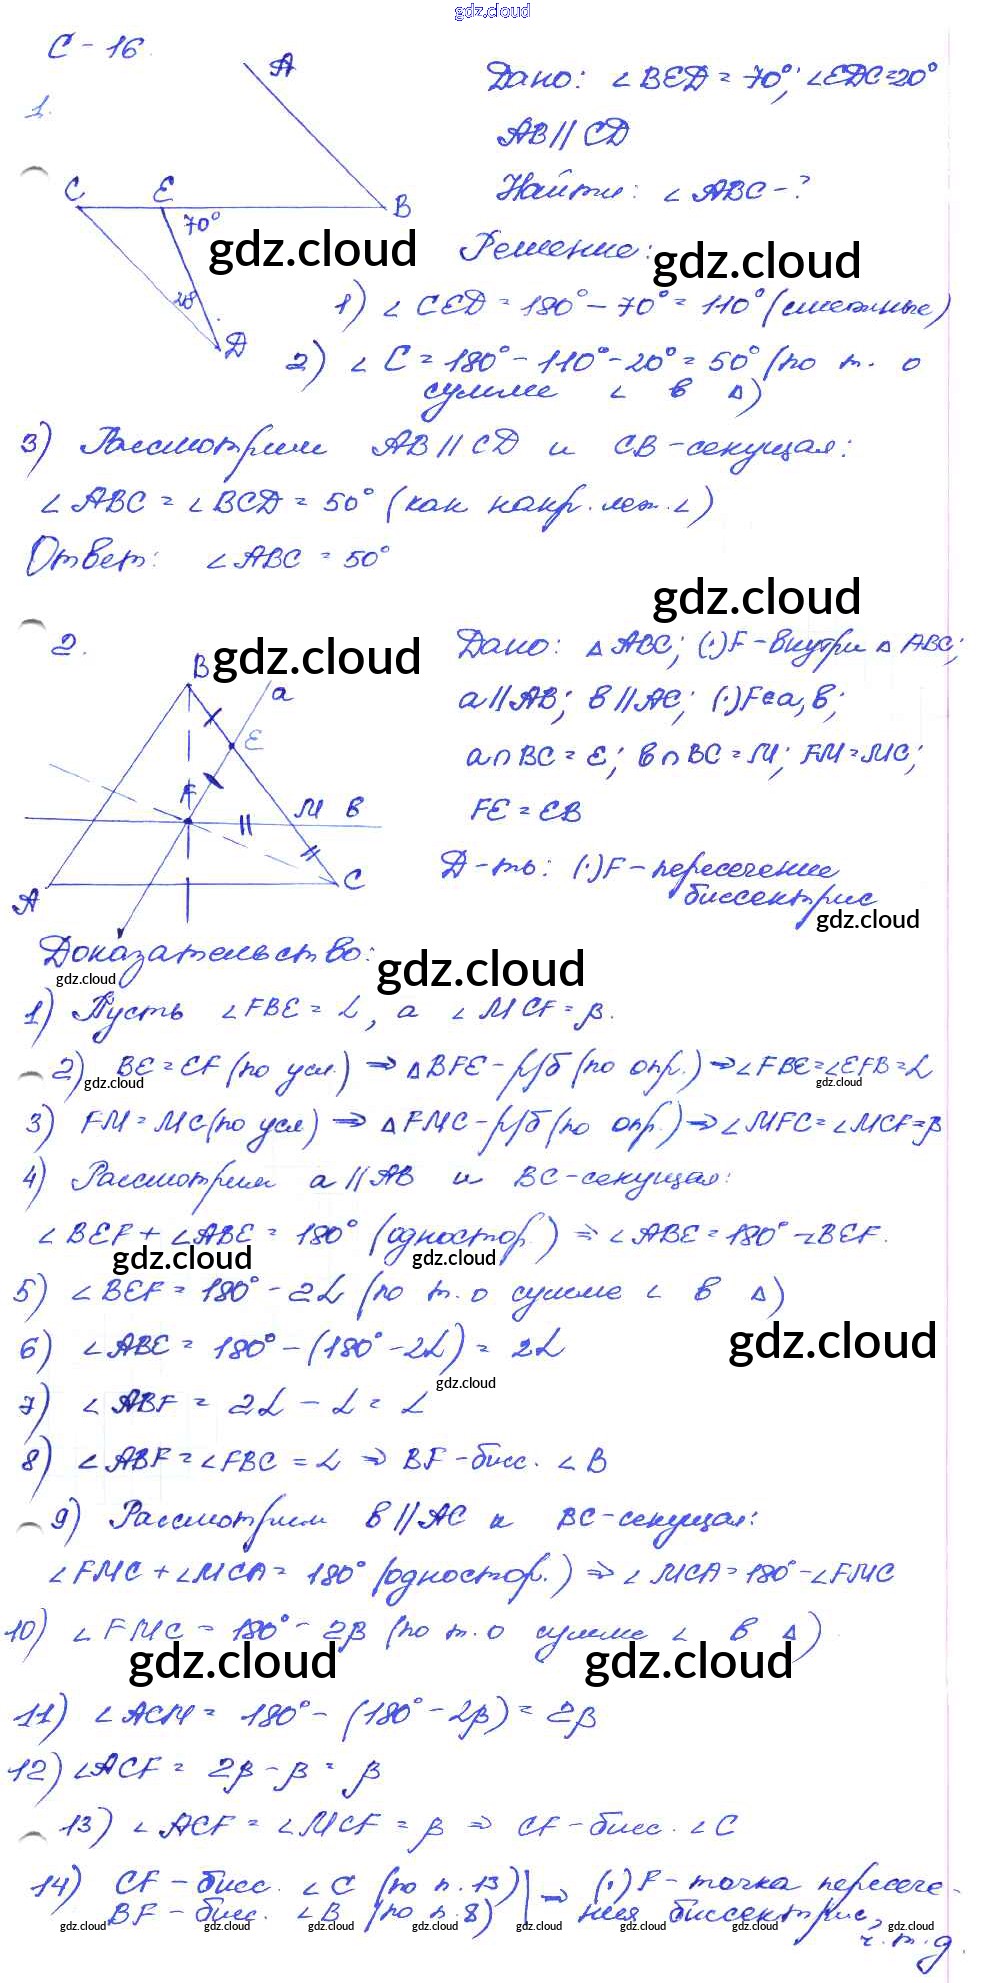 gdz.cloud
С - 16.
1.
A
C E B
70°
20
D
Дано: ∠BED = 70°; ∠EDC = 20°
AB || CD
Найти: ∠ABC - ?
Решение:
gdz.cloud gdz.cloud
1) ∠CED = 180° - 70° = 110° (смежные)
2) ∠C = 180° - 110° - 20° = 50° (по т. о
сумме ∠ в Δ)
3) Рассмотрим AB || CD и CB - секущая:
∠ABC = ∠BCD = 50° (как накр. леж. ∠)
Ответ: ∠ABC = 50°
gdz.cloud
2.
gdz.cloud
B a
E
F M в
A C
Дано: Δ ABC; (·)F - внутри Δ ABC;
a || AB; в || AC; (·)F∈a, в;
a ∩ BC = E; в ∩ BC = M; FM = MC;
FE = EB
Д-ть: (·)F - пересечение
биссектрис
gdz.cloud
Доказательство:
gdz.cloud gdz.cloud
1) Пусть ∠FBE = α, а ∠MCF = β.
2) BE = EF (по усл.) ⇒ Δ BFE - р/б (по опр.) ⇒ ∠FBE = ∠EFB = α
gdz.cloud gdz.cloud
3) FM = MC (по усл) ⇒ Δ FMC - р/б (по опр.) ⇒ ∠MFC = ∠MCF = β
4) Рассмотрим a || AB и BC - секущая:
∠BEF + ∠ABE = 180° (одностор.) ⇒ ∠ABE = 180° - ∠BEF.
gdz.cloud gdz.cloud
5) ∠BEF = 180° - 2α (по т. о сумме ∠ в Δ)
6) ∠ABE = 180° - (180° - 2α) = 2α
gdz.cloud
gdz.cloud
7) ∠ABF = 2α - α = α
8) ∠ABF = ∠FBC = α ⇒ BF - бисс. ∠B
9) Рассмотрим в || AC и BC - секущая:
∠FMC + ∠MCA = 180° (одностор.) ⇒ ∠MCA = 180° - ∠FMC
10) ∠FMC = 180° - 2β (по т. о сумме ∠ в Δ)
gdz.cloud gdz.cloud
11) ∠ACM = 180° - (180° - 2β) = 2β
12) ∠ACF = 2β - β = β
13) ∠ACF = ∠MCF = β ⇒ CF - бисс. ∠C
14) CF - бисс. ∠C (по п. 13) | ⇒ (·) F - точка пересече-
BF - бисс. ∠B (по п. 8) | ния биссектрис,
gdz.cloud gdz.cloud gdz.cloud gdz.cloud gdz.cloud gdz.cloud gdz.cloud gdz.cloud
ч.т.д.